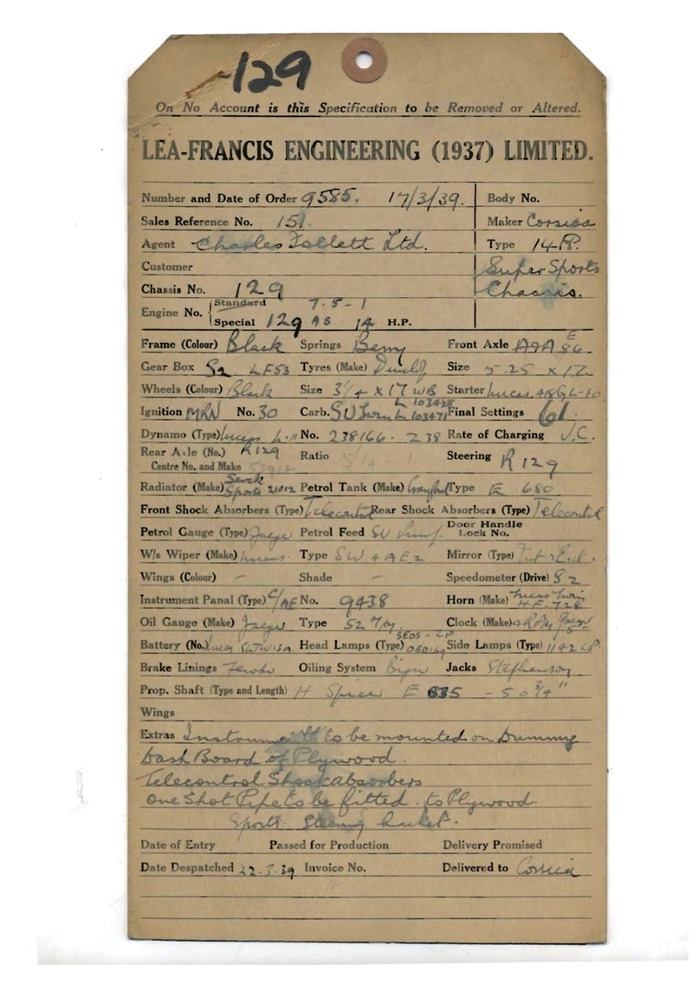 129
On No Account is this Specification to be Removed or Altered.
LEA-FRANCIS ENGINEERING (1937) LIMITED.
Number and Date of Order 9585. 17/3/39. Body No.
Sales Reference No. 151. Maker Corsica
Agent Charles Follett Ltd. Type 14 P.
Customer Super Sports
Chassis No. 129 Chassis.
Standard 7.5-1
Engine No. Special 129 AS 14 H.P.
Frame (Colour) Black Springs Berry Front Axle A9A E 86
Gear Box S2 LF53 Tyres (Make) Dunlop Size 5.25 x 17
Wheels (Colour) Black Size 3 1/4 x 17 WB Starter Lucas
Ignition MRN No. 30 Carb. SU Twin L 103428 L 103471 Final Settings 61
Dynamo (Type) Lucas No. 238166. Z 38 Rate of Charging V.C.
Rear Axle (No.) R129 Ratio Steering R129
Centre No. and Make
Radiator (Make) Serck Sports 21012 Petrol Tank (Make) Type E 680
Front Shock Absorbers (Type) Telecontrol Rear Shock Absorbers (Type) Telecontrol
Petrol Gauge (Type) Jaeger Petrol Feed SU Pump. Door Handle Lock No.
W/s Wiper (Make) Lucas. Type SW4 AE2 Mirror (Type)
Wings (Colour) - Shade - Speedometer (Drive) 82
Instrument Panal (Type) C/AE No. 9438 Horn (Make) Lucas Twin H.F. 728
Oil Gauge (Make) Jaeger Type Clock (Make) Jaeger
Battery (No.) Lucas Head Lamps (Type) Side Lamps (Type) 1142 CP
Brake Linings Ferodo Oiling System Bijur Jacks Stephenson
Prop. Shaft (Type and Length) H Spicer E 635 - 50 3/4"
Wings
Extras Instruments to be mounted on Dummy
Dash Board of Plywood.
Telecontrol Shockabsorbers
One Shot Pipe to be fitted. to Plywood.
Sports Steering bracket.
Date of Entry Passed for Production Delivery Promised
Date Despatched 22-5-39 Invoice No. Delivered to Corsica